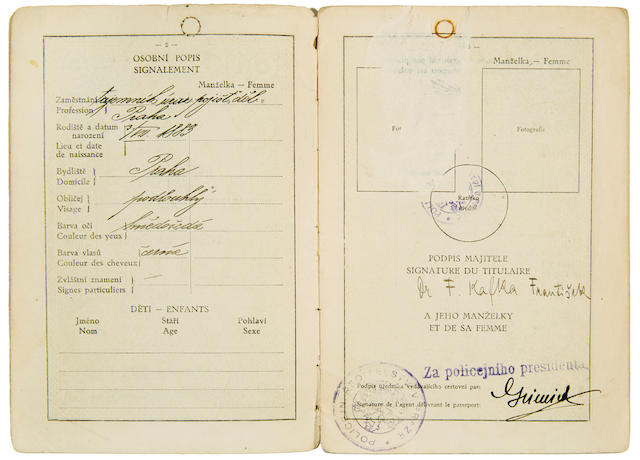 — 2 —
OSOBNÍ POPIS
SIGNALEMENT
Manželka — Femme
Zaměstnání tajemník úraz. pojišť. děl.
Profession
Praha
Rodiště a datum narození 3/VII 1883
Lieu et date de naissance
Bydliště Praha
Domicile
Obličej podlouhlý
Visage
Barva očí
Couleur des yeux
Barva vlasů černá
Couleur des cheveux
Zvláštní znamení —
Signes particuliers
DĚTI — ENFANTS
Jméno Stáří Pohlaví
Nom Age Sexe
Manželka — Femme
Fot
Fotografie
PODPIS MAJITELE
SIGNATURE DU TITULAIRE
Dr F. Kafka František
A JEHO MANŽELKY
ET DE SA FEMME
Za policejního presidenta
Podpis úředníka vydávajícího cestovní pas:
Signature de l'agent délivrant le passeport: